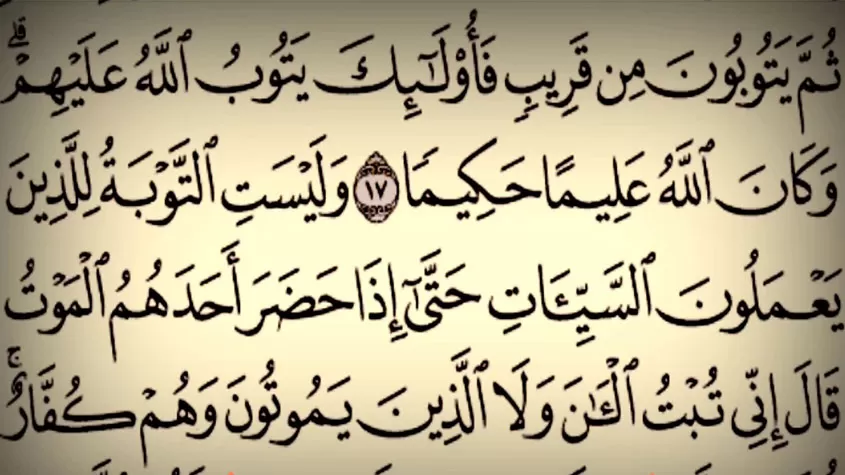 ثُمَّ يَتُوبُونَ مِن قَرِيبٍ فَأُو۟لَـٰٓئِكَ يَتُوبُ ٱللَّهُ عَلَيْهِمْ ۗ
وَكَانَ ٱللَّهُ عَلِيمًا حَكِيمًا ١٧ وَلَيْسَتِ ٱلتَّوْبَةُ لِلَّذِينَ
يَعْمَلُونَ ٱلسَّيِّـَٔاتِ حَتَّىٰٓ إِذَا حَضَرَ أَحَدَهُمُ ٱلْمَوْتُ
قَالَ إِنِّى تُبْتُ ٱلْـَٔـٰنَ وَلَا ٱلَّذِينَ يَمُوتُونَ وَهُمْ كُفَّارٌ ۚ